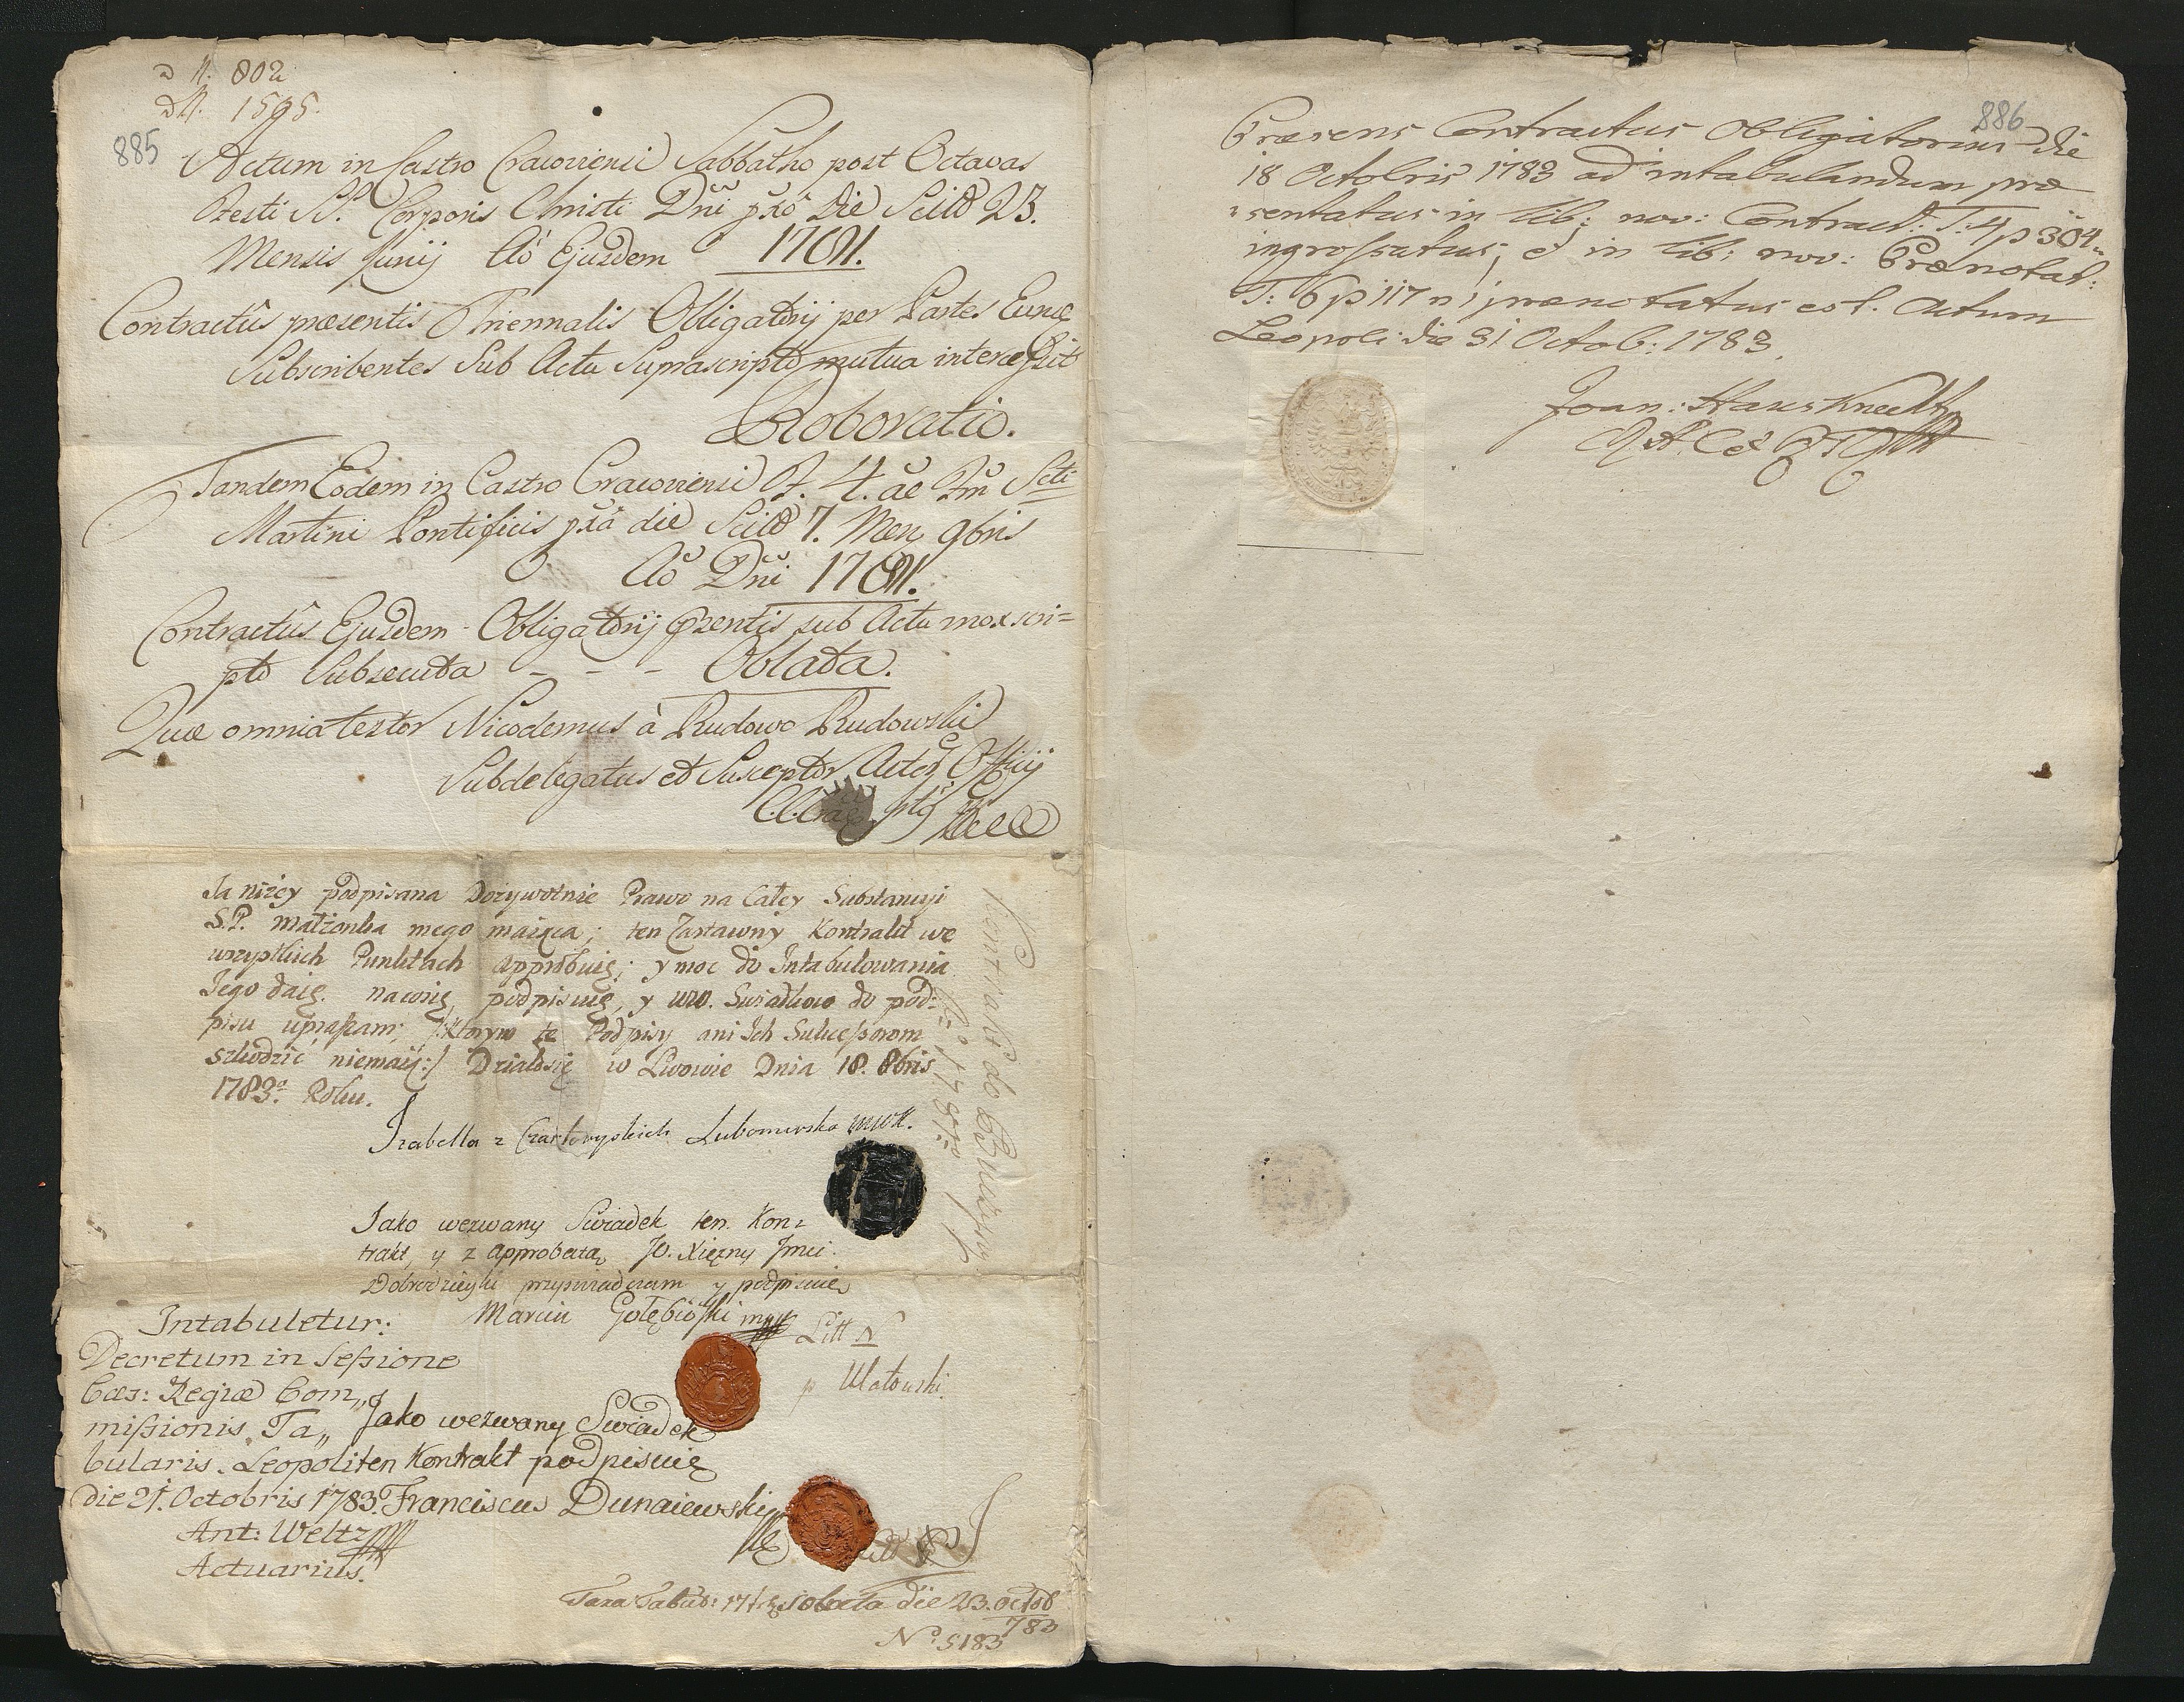 ad N. 802
ad N. 1595.
885
Actum in Castro Cracoviensi Sabbatho post Octavas
Festi SS. Corporis Christi Dni pxo die Scild 23.
Mensis Junij Ao Ejusdem 1781.
Contractûs præsentis Triennalis Obligatorij per Partes Eunde
Subscribentes Sub Actu Suprascripto mutua intercessit
Roboratio.
Tandem Eodem in Castro Cracoviensi F. 4. ae Fm Scti
Martini Pontificis pxa die Scild 7. Men 9bris
Ao Dni 1781.
Contractûs Ejusdem Obligatorij pxentis sub Actu mox scri=
pto Subsecuta - - - Oblata.
Quæ omnia testor Nicodemus à Rudowo Rudowski
Subdelegatus et Susceptor Actor Officij
Ja niżey podpisana Dożywotnie Prawo na Całey Substancyi
S.P. małżonka mego maiąca; ten Zastawny Kontrakt we
wszystkich Punktach approbuię; y moc do Intabulowania
Jego daię. na co się podpisuię, y uro. Swiadkow do pod=
pisu upraszam; /:Którym te Podpisy ani Ich Sukcessorom
szkodzić niemaią:/ Działo się w Lwowie Dnia 18. 8bris
1783o Roku.
Izabella z Czartoryskich Lubomirska mwk.
Kontrakt do
Jako wezwany Swiadek ten Kon=
trakt y z approbatą JO. Xiężny Jmci
Dobrodzieyki przyswiadczam y podpisuię
Marcin Gołębioski mp
Litt N
Intabuletur:
Decretum in Sessione
Cæs: Regiæ Com„
missionis Ta„
bularis. Leopoli
die 21. Octobris 1783.
Ant: Weltz
Actuarius.
Jako wezwany Swiadek
ten Kontrakt podpisuię
Franciscus Dunaiewski
Taxa Tabul: 17 soluta die 23. octob
783
No: 5183
886
Præsens Contractus Obligatorius die
18 Octobris 1783 ad intabulandum præ
sentatus in lib: nov: Contract: T: 4 p 304
ingrossatus, et in lib: nov: Prænotat:
T: 6 p 117 n 1 prænotatus est. Actum
Leopoli die 31 Octob: 1783.
Joan: Hausknecht